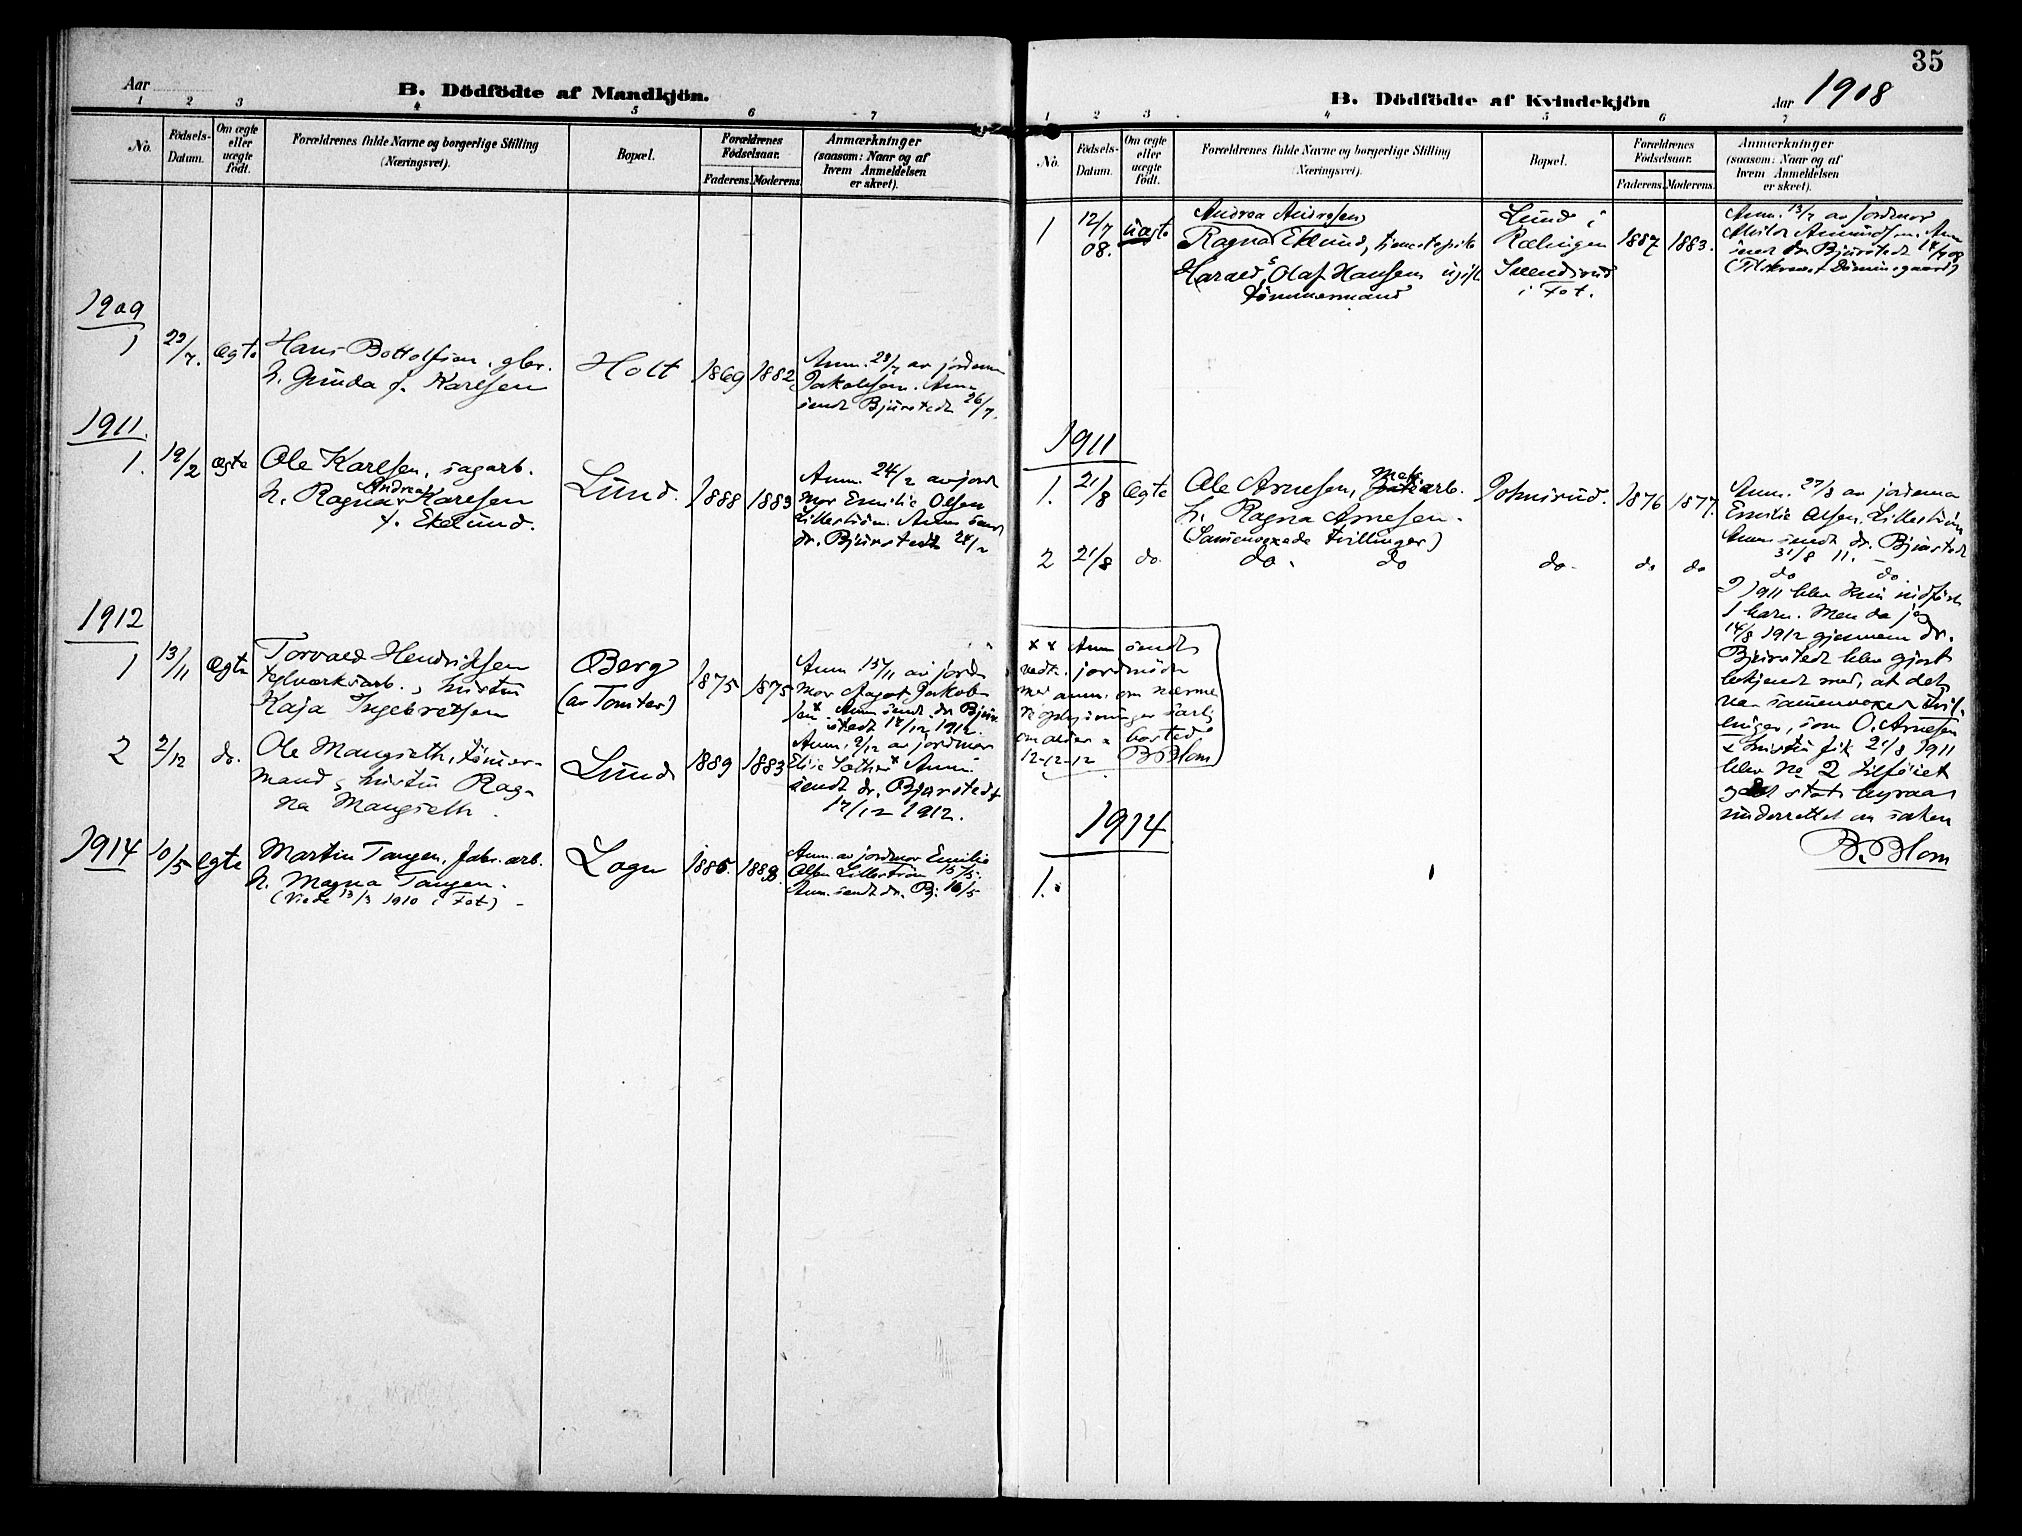 Aar
B. Dödfödte af Mandkjön.
1 2 3 4 5 6 7
No.
Födsels-Datum.
Om ægte eller uægte födt.
Forældrenes fulde Navne og borgerlige Stilling
(Næringsvei).
Bopæl.
Forældrenes Födselsaar.
Faderens. Moderens.
Anmærkninger
(saasom: Naar og af
hvem Anmeldelsen
er skeet).
1909
1 23/7. ægte Hans Bottolfsen, gbr. Holt 1869 1882 Anm. 23/7 av jordm
h. Gunda f. Karlsen Jakobsen. Anm
sendt Bjürstedt 26/7.
1911.
1. 19/2 ægte Ole Karlsen, sagarb. Lund. 1888 1883 Anm. 24/2 av jord
h. Ragna Andrea Karlsen mor Emilie Olsen
f. Eklund. Lilleström. Anm send
dr. Bjürstedt 24/2
1912
1 13/11 ægte Torvald Hendriksen Berg 1875 1875 Anm 15/11 av jord
teglverksarb., hustru (av Tomter) mor Aagot Jakob
Kaja Ingebretsen sen x Anm sendt dr Bjür
stedt 17/12 1912.
2 2/12 do. Ole Mangseth, tömmer- Lund 1889 1883 Anm. 9/12 av jordmor
mand, hustru Rag- Elise Sæther x Anm.
na Mangseth. sendt dr. Bjürstedt
17/12 1912.
1914 10/5 egte Martin Tangen, fabr. arb. Logn 1886. 1888. Anm. av jordmor Emilie
h. Magna Tangen. Olsen Lilleström 15/5.
(Viede 13/3 1910 i Fet) Anm. sendt dr. Bj. 16/5
35
B. Dödfödte af Kvindekjön
Aar 1908
1 2 3 4 5 6 7
No.
Födsels-Datum.
Om ægte eller uægte födt.
Forældrenes fulde Navne og borgerlige Stilling
(Næringsvei).
Bopæl.
Forældrenes Födselsaar.
Faderens. Moderens.
Anmærkninger
(saasom: Naar og af
hvem Anmeldelsen
er skeet).
Andrea Andresen
1 12/7 08. uægte Ragna Eklund, tjenestepike Lund i Rælingen 1887 1883. Anm. 13/7 av jordmor
Harald Olaf Hansen ugift Svendsrud Amundsen. Anm
tömmermand i Fet. sendt dr Bjürstedt 14/7 08
1911
1. 21/8 ægte Ole Arnesen, mek arb. Johnsrud. 1876 1877. Anm. 27/8 av jordmor
h. Ragna Arnesen. Emilie Olsen, Lilleström
(Sammenvoxede tvillinger) Anm sendt dr. Bjürstedt
31/8 11.
2 21/8 do. do. do do. do do do do.
I 1911 blev kun indfört
1 barn. Men da jeg
14/8 1912 gjennem dr.
Bjürstedt blev gjort
bekjendt med, at det
var sammenvoxede tvil-
linger, som O. Arnesen
& hustru fik 21/8 1911
blev No 2 tilföiet
og det stat. byraa
underrettet om saken
B. Blom
x x Anm sendt
vedk. jordmödre
med anm. om nærme
re oplysninger særlig
om alder & bosted
12-12-12 B Blom
1914
1.